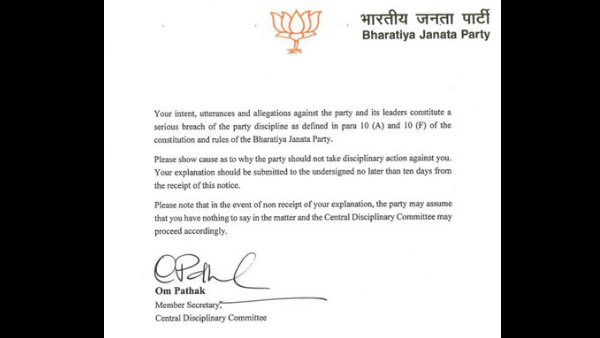 भारतीय जनता पार्टी
Bharatiya Janata Party
Your intent, utterances and allegations against the party and its leaders constitute a
serious breach of the party discipline as defined in para 10 (A) and 10 (F) of the
constitution and rules of the Bharatiya Janata Party.
Please show cause as to why the party should not take disciplinary action against you.
Your explanation should be submitted to the undersigned no later than ten days from
the receipt of this notice.
Please note that in the event of non receipt of your explanation, the party may assume
that you have nothing to say in the matter and the Central Disciplinary Committee may
proceed accordingly.
Om Pathak
Member Secretary,
Central Disciplinary Committee